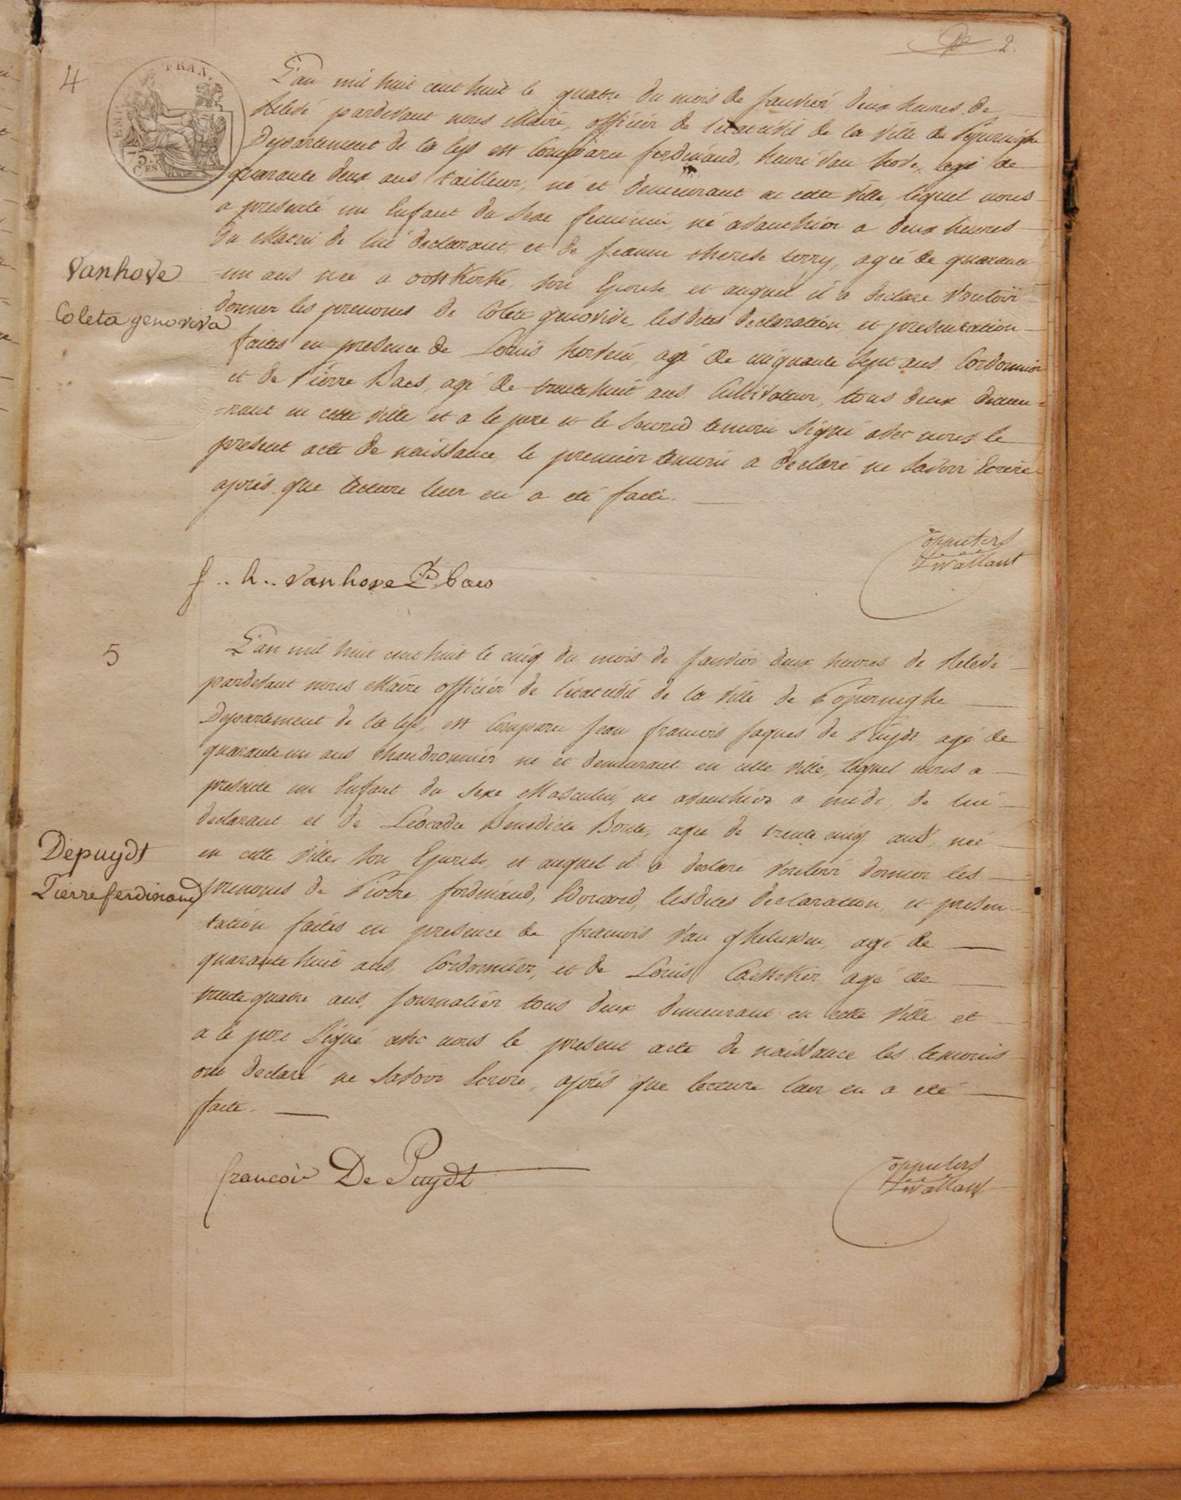 2.
4
EMP. FRAN.
L'an mil huit cent huit le quatre du mois de Janvier deux heures de
relevé pardevant nous Maire, officier de l'etat civil de la ville de Poperinghe
Departement de la Lys est comparu ferdinand henri Van hove, agé de
quarante deux ans tailleur, né et demeurant en cette ville, lequel nous
a presenté un Enfant du Sexe feminin né avanthier a deux heures
du Matin de lui declarant et de jeanne therese , agée de quarante
un ans née a oostkerke, son Epouse et auquel il a declaré Vouloir
donner les prenoms de Colete genovive, lesdites declaration et presentation
faites en presence de Louis , agé de cinquante Sept ans Cordonnier
et de Pierre Baes, agé de trente huit ans Cultivateur, tous deux demeu-
rant en cette ville et a le pere et le Second temoin Signé avec nous le
present acte de naissance, le premier temoin a declaré ne Savoir Ecrire
après que lecture leur en a été faite.
Vanhove
Coleta genoviva
f.. h.. vanhove P. baes
5
L'an mil huit cent huit le cinq du mois de Janvier deux heures de Relevé
pardevant nous Maire officier de l'etat civil de la Ville de Poperinghe
Departement de la Lys, est Comparu Jean francois Jaques de Puydt agé de
quarante un ans Chaudronnier né et demeurant en cette Ville, lequel nous a
presenté un Enfant du Sexe Masculin, né avanthier a midi, de lui
declarant et de Leocadie Benedicte Bonte, agée de trente cinq ans, née
en cette Ville, Son Epouse, et auquel il a declaré Vouloir donner les
prenoms de Pierre ferdinand, Edouard, lesdites declaration, et presen-
tation faites en presence de francois Van gheluwe, agé de
quarante huit ans, Cordonnier, et de Louis agé de
trente quatre ans, Journalier tous deux demeurant en cette Ville et
a le pere Signé avec nous le present acte de naissance les temoins
ont declaré ne Savoir Ecrire, après que lecture leur en a été
faite.
Depuydt
Pierre ferdinand
francois De Puydt